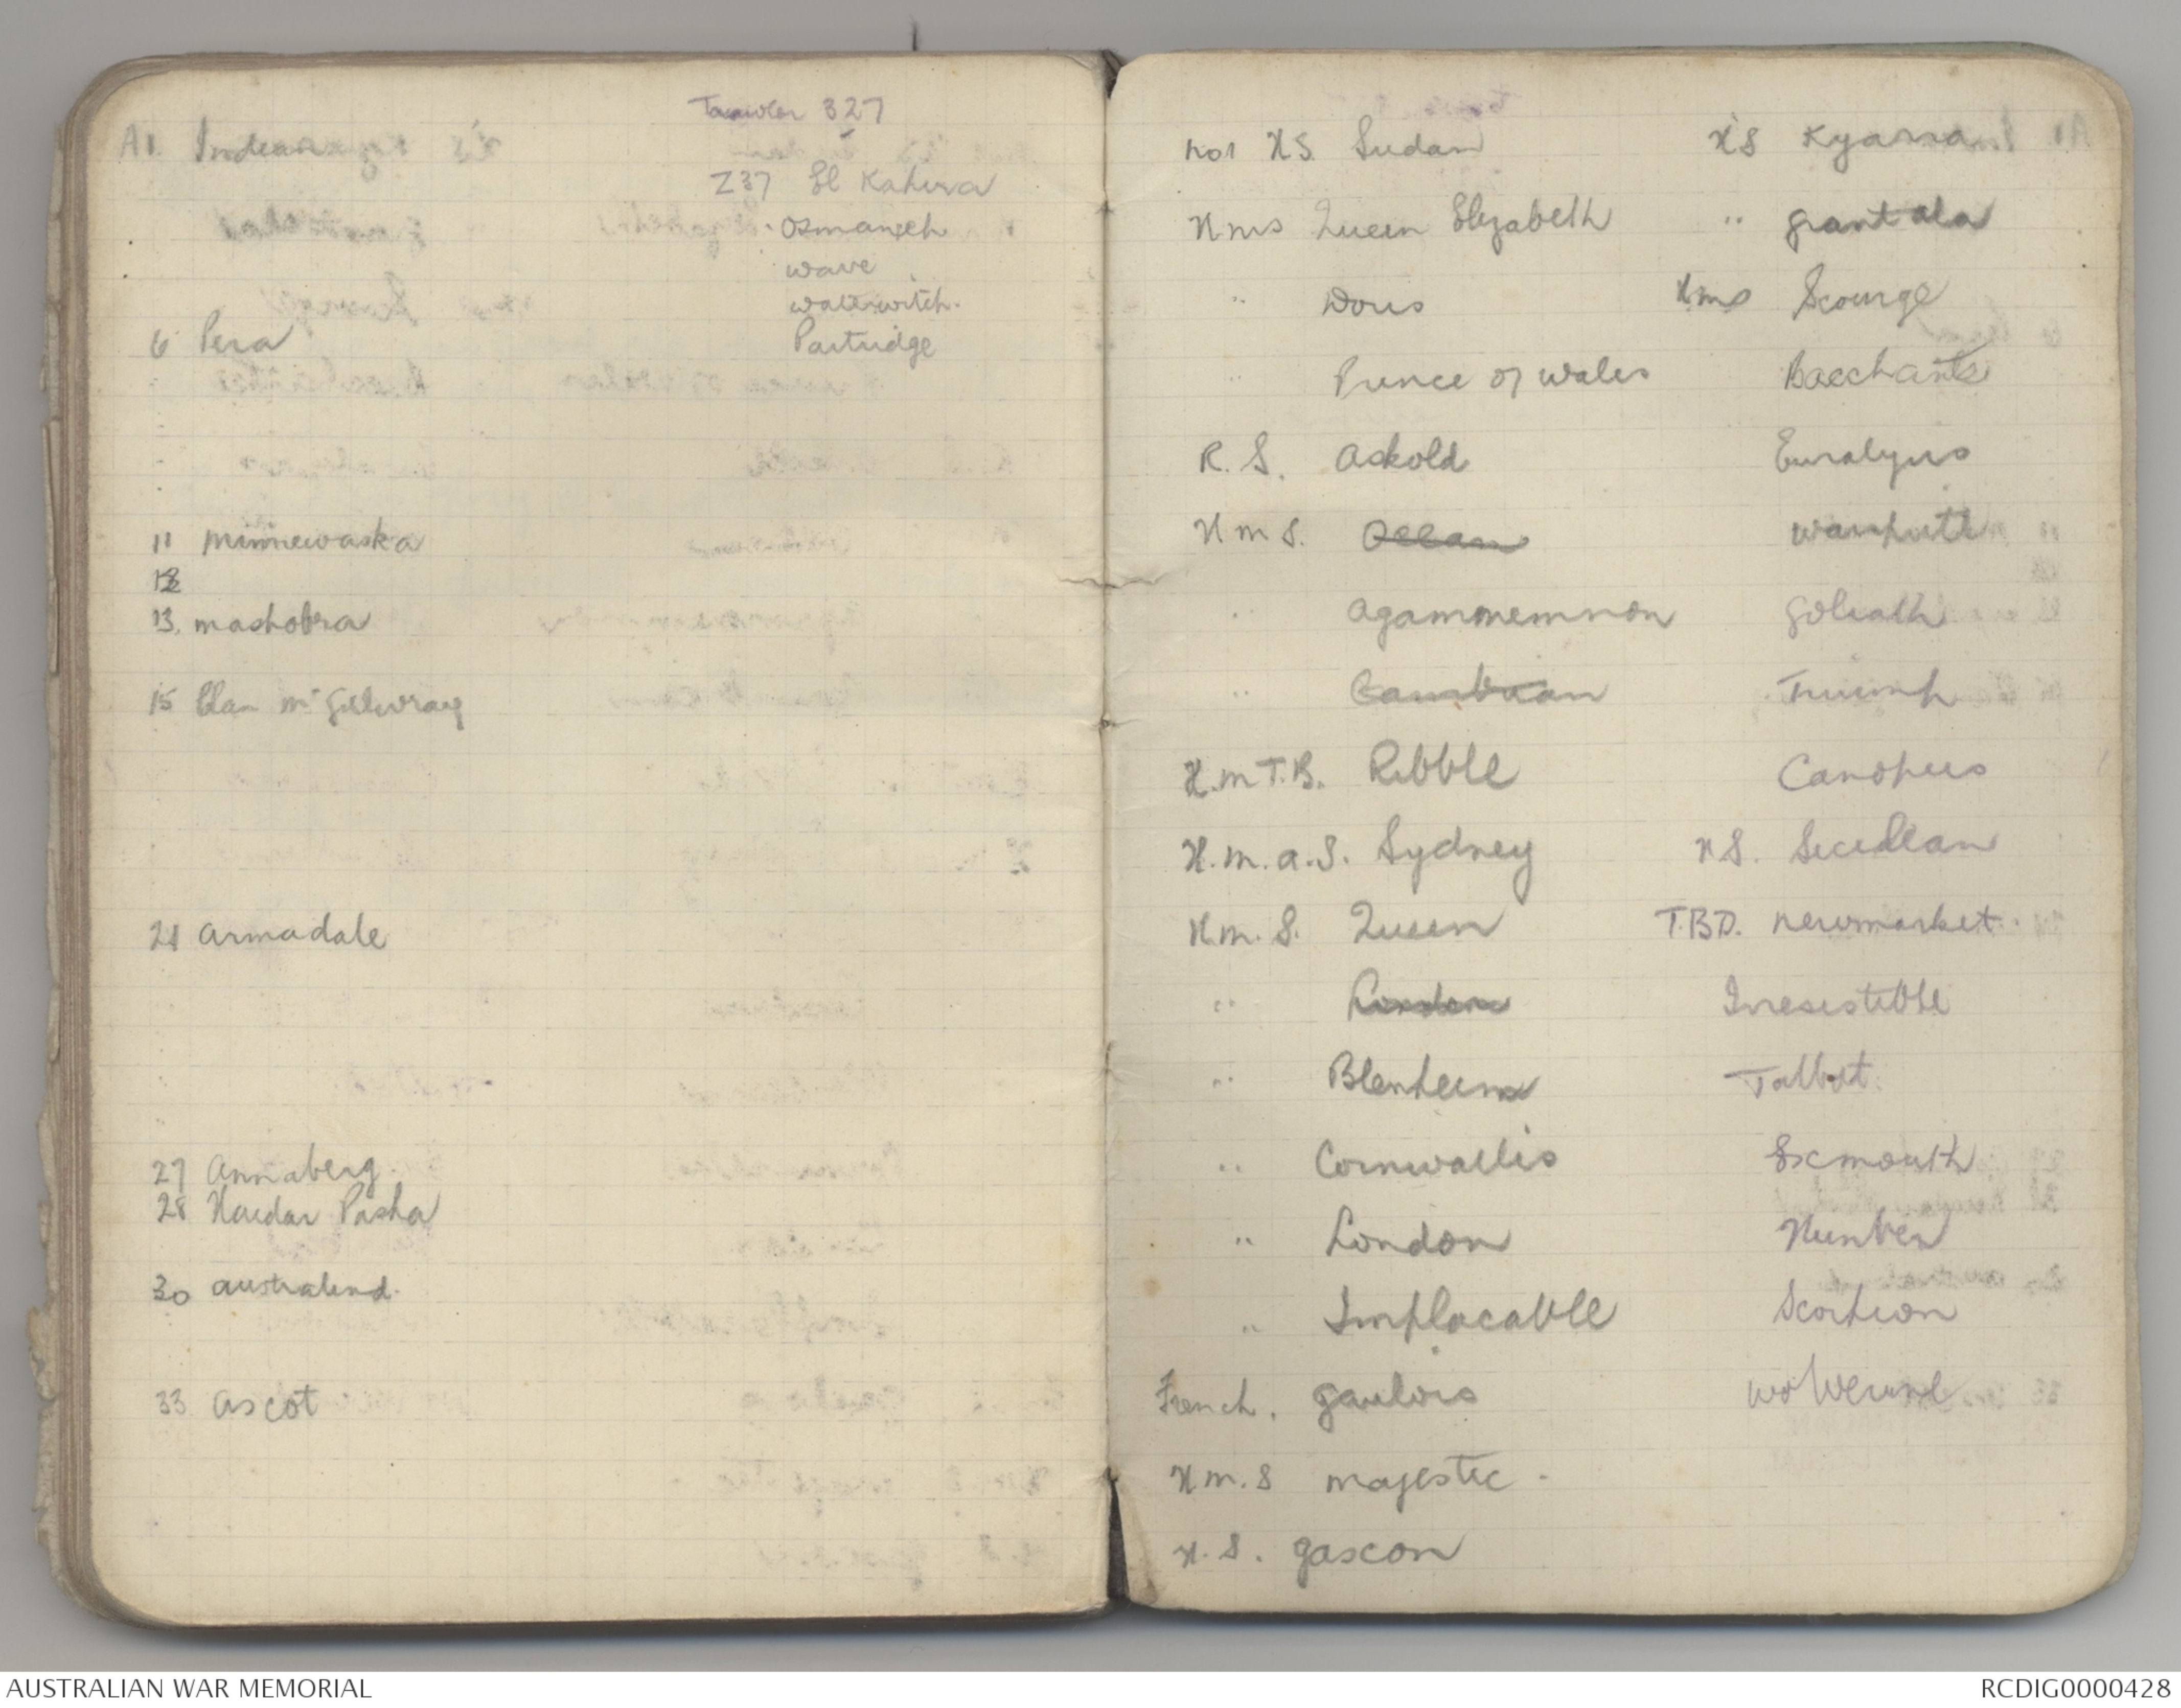 Trawler 327
A1. Indian
Z37 El Kahira
Osmanieh
wave
waterwitch.
6 Pera
Partridge
11 Minnewaska
12
13. mashobra
15 Clan McGilwray
21 Armadale
27 Annaberg.
28 Haidar Pasha
30 australind.
33 ascot
No1 H.S. Sudan
Hms Queen Elizabeth
" Doris
" Prince of Wales
R. S. Askold
H m S. Ocean
" Agammemnon
" Cambrian
H.m T.B. Ribble
H.m.a.S. Sydney
H.m. S. Queen
" London
" Blenheim
" Cornwallis
" London
" Implacable
French. gaulois
H m. S majestic.
H. S. gascon
H'S Kyarra
" grantala
Hms Scourge
Bacchante
Euralyus
warspite
Goliath
Triumph
Canopus
H S. Sicilian
T.B.D. newmarket.
Irresistible
Talbot.
Exmouth
Humber
Scorpion
Wolverine
AUSTRALIAN WAR MEMORIAL
RCDIG0000428